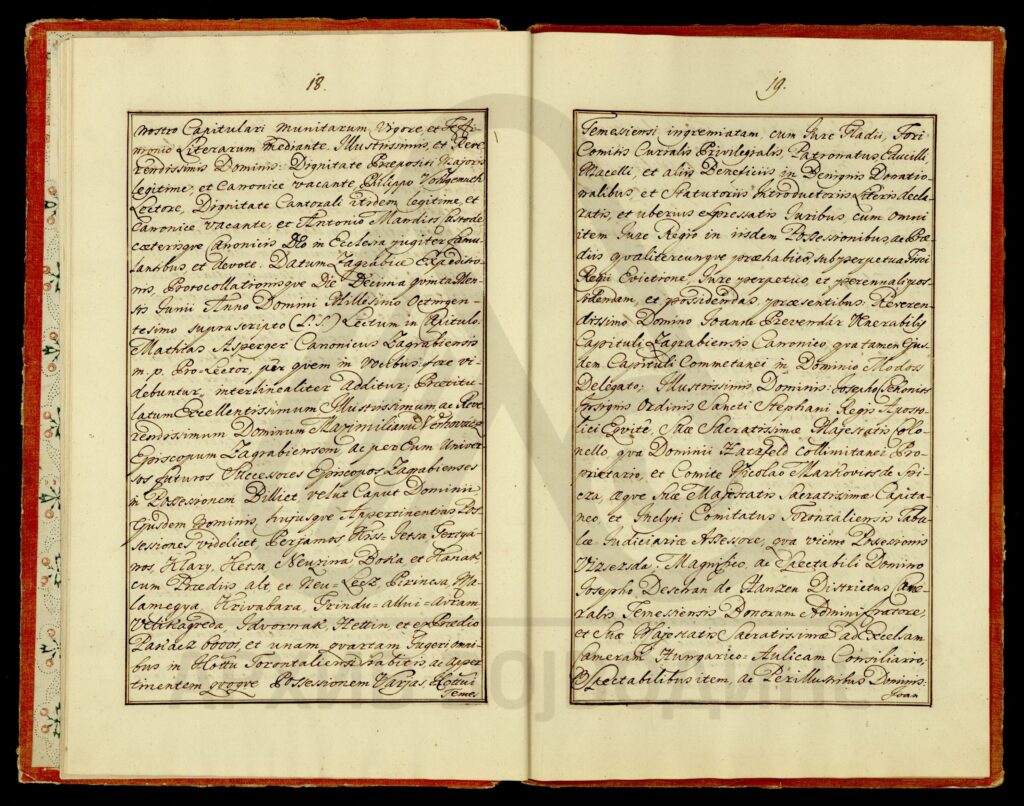 18.
nostro Capitulari munitarum Vigore, et Testi-
monio Literarum mediante. Illustrissimis, et Reve
rendissimis Dominis: Dignitate Præpositi Majoris
legitime, et Canonice vacante, Philippo Vohlgemuth
Lectore, Dignitate Cantorali itidem legitime, et
Canonice vacante, et Antonio Mandics Custode
cæterisque Canonicis Deo in Ecclesia jugiter Famu
lantibus et devote. Datum Zagrabiæ Extraditio
nis, Protocollationisque Die Decima quinta Men-
sis Junii Anno Domini Millesimo Octingen-
tesimo suprascripto (L.S.) Lectum in Capitulo.
Mathias Asperger Canonicus Zagrabiensis
m. p. Pro-Lector, per quem in vocibus fore vi
debuntur, interlinealiter additur, Prætitu-
latum Excellentissimum Illustrissimum ac Reve
rendissimum Dominum Maximilianum Verhovacz
Episcopum Zagrabiensem, ac per Eum Univer
sos futuros Successores Episcopos Zagrabienses
in Possessionem Billiet, velut Caput Dominii
Ejusdem Nominis, hujusque Appertinentias Pos
sessiones videlicet Perjamos Kiss-Jetsa Gertya
nos, Klary, Ketsa Neuzina Boka et Hanak
cum Prædiis alt, et Neu-Leez Pirincsa, Ma
lamegya Krivabara, Grindu-allui-Avram
Velikagreda, Idvornak, Hettin, et ex Prædio
Pandez et unam quartam Jugeri omni
bus in Cottu Torontaliensi habitis ac Apper
tinentem quoque Possessionem Varjas Cottui
Temes
19.
Temesiensi ingremiatam, cum Jure Gladii, Fori
Comitis Curialis Privilegialis, Patronatus Educilli,
Macelli, et aliis Beneficiis in Benignis Donatio
nalibus, et Statutoriis Introductoriis Literis decla
ratis, et uberius expressatis Juribus, cum omni
item Jure Regio in iisdem Possessionibus, ac Præ
diis qualitercunque præhabito, sub perpetua Fisci
Regii Evictione, Jure perpetuo, et perennali pos
sidendam, et possidendas, præsentibus: Reveren
dissimo Domino Joanne Prevendar Venerabilis
Capituli Zagrabiensis Canonico, qua tamen Ejus
dem Capituli Commetanei in Dominio Modos
Delegato; Illustrissimis Dominis: Josepho Schonist
Insignis Ordinis Sancti Stephani Regis Aposto
lici Equite, Suæ Sacratissimæ Majestatis Collo
nello, qua Dominii Hatzfeld Collimitanei Pro-
prietario, et Comite Nicolao Markovits de Spi-
cza, æque Suæ Majestatis Sacratissimæ Capita-
neo, et Inclyti Comitatus Torontaliensis Tabu
læ Judiciariæ Assessore, qua vicino Possessionis
Vizesda; Magnifico, ac Spectabili Domino
Josepho Deschan de Hanzen Districtus Came
ralis Temesiensis Bonorum Administratore,
et Suæ Majestatis Sacratissimæ ad Excelsam
Cameram Hungarico-Aulicam Consiliario;
Spectabilibus item, ac Perillustribus Dominis:
Joan